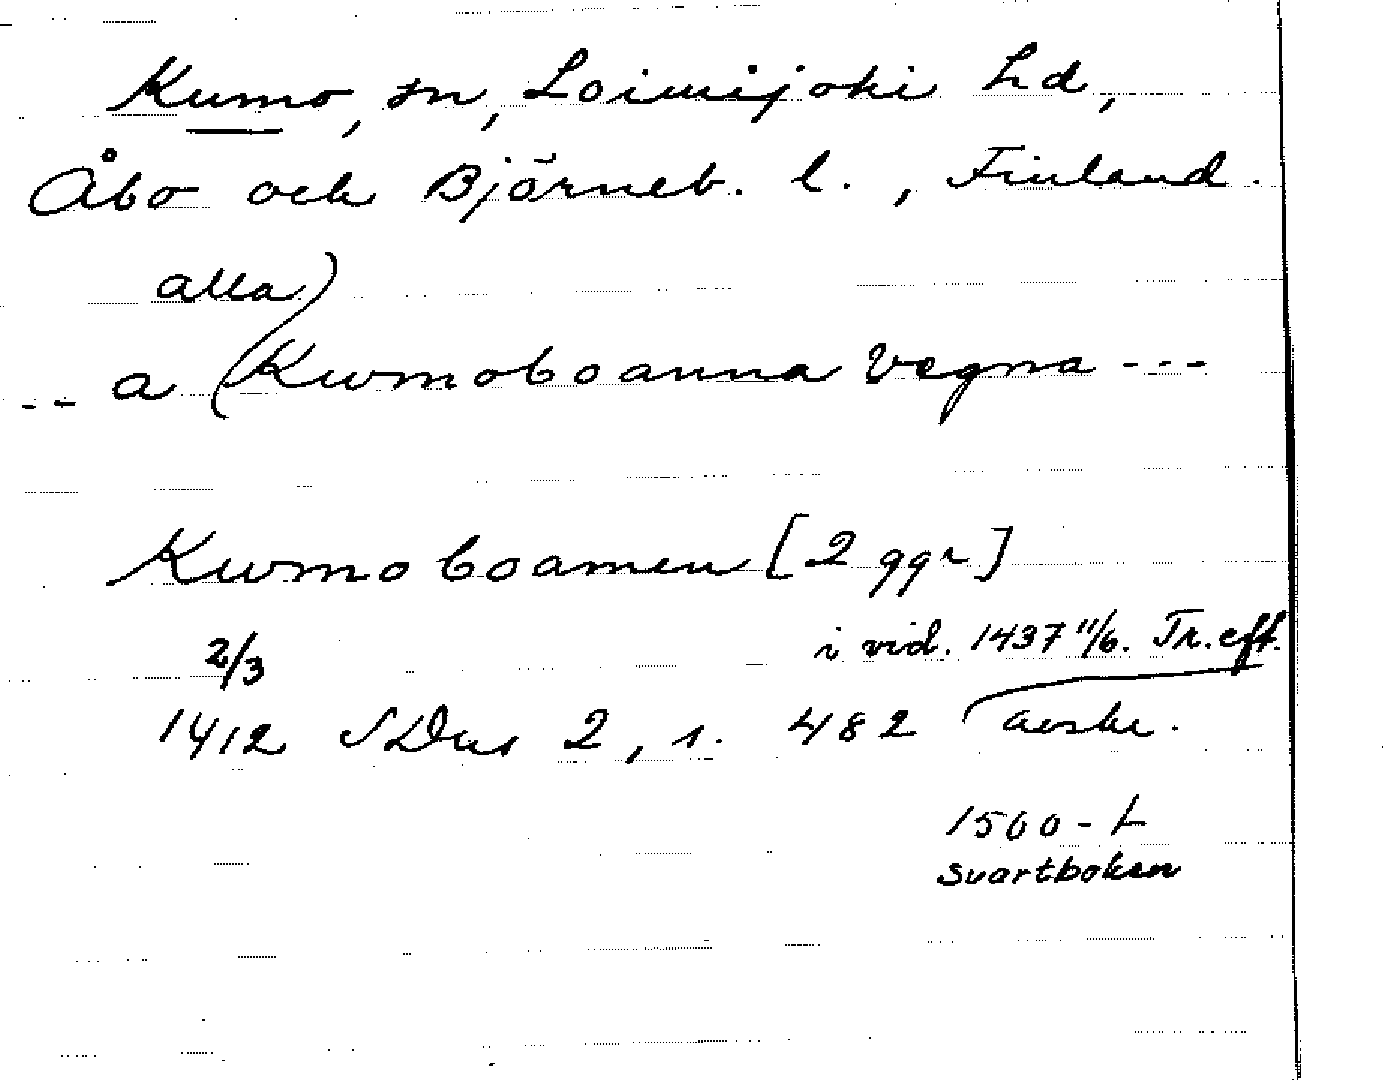 Kumo, sn, Loimijoki hd,
Åbo och Björneb. l., Finland.
alla)
-- a (Kwmoboanna vegna ---
Kwmoboamen [2 ggr]
2/3 i vid. 1437 11/6. Tr. eft.
1412 SDns 2, s. 482 avskr.
1500-t
Svartboken